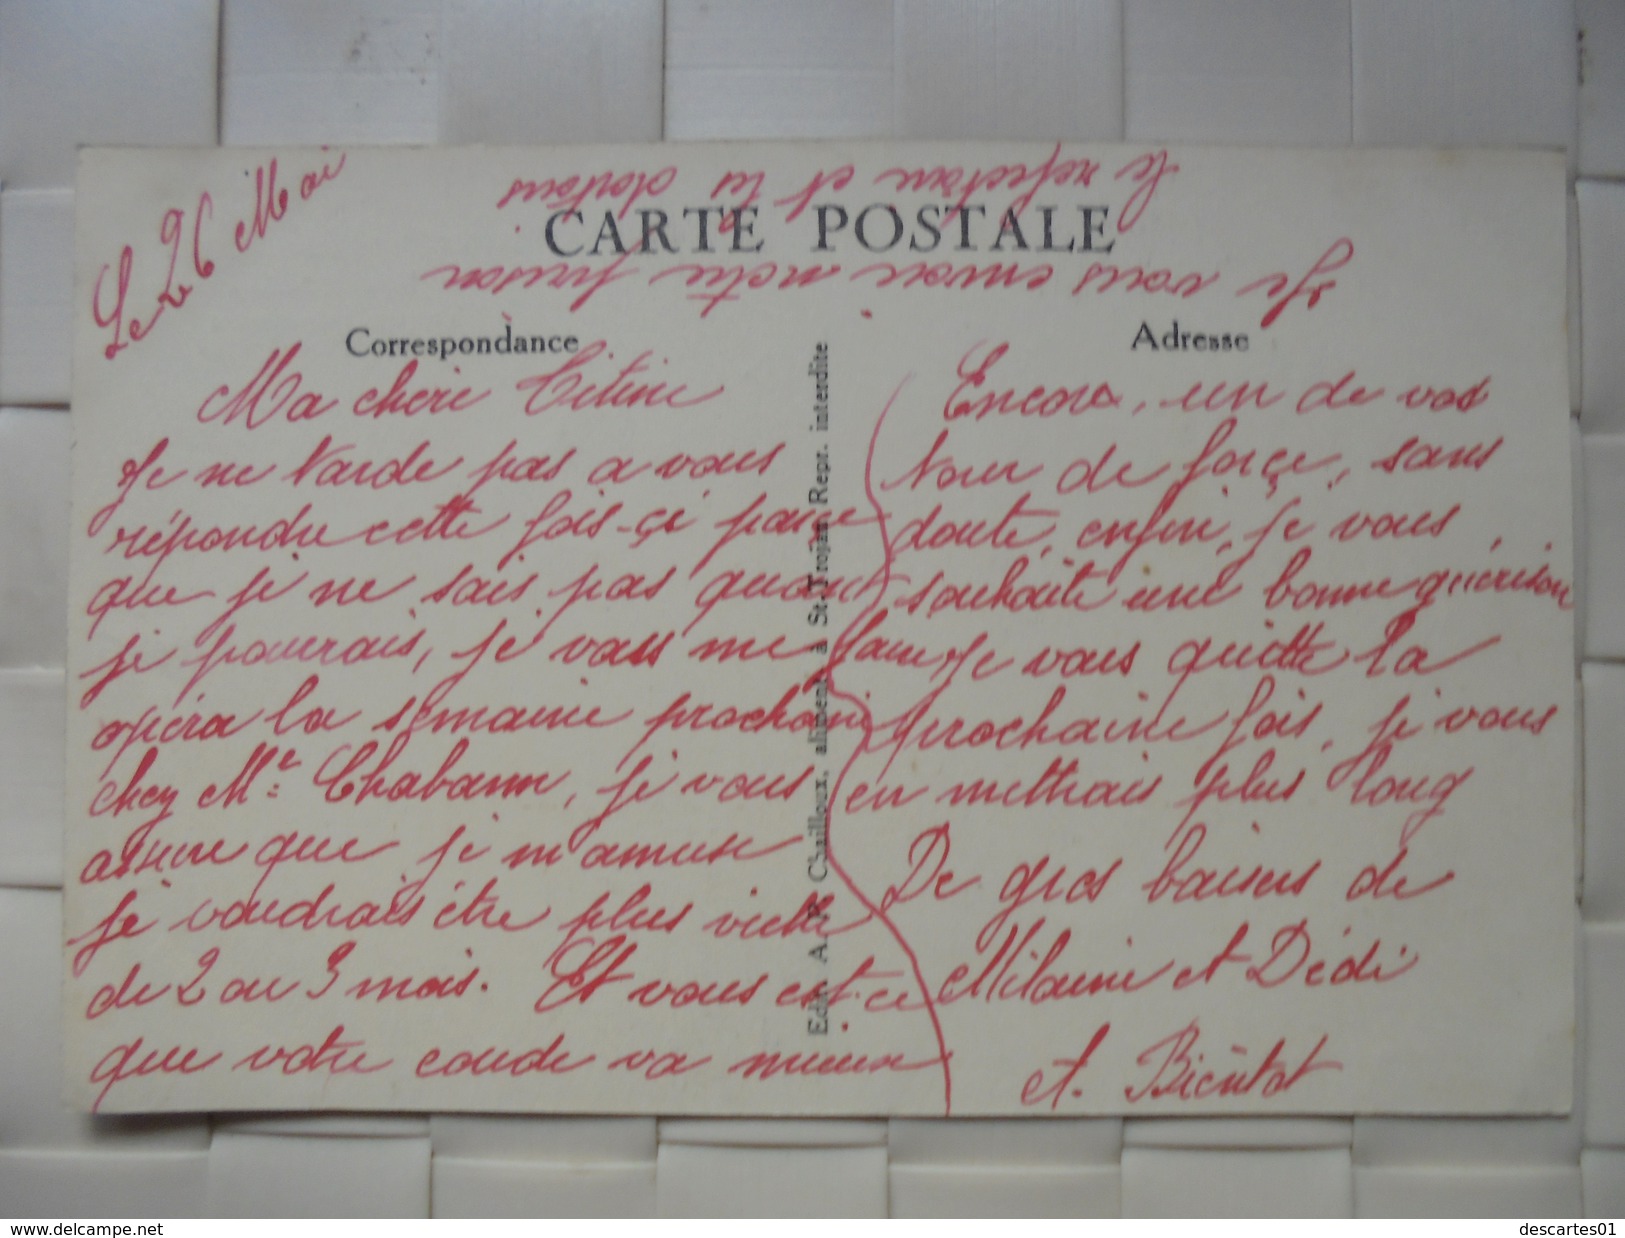 Le 26 Mai
le refectoire et les dortoirs
Je vous envoie notre prison
CARTE POSTALE
Correspondance
Adresse
Ma chère Titine
Je ne tarde pas a vous
répondre cette fois-çi parce
que je ne sais pas quand
je pourrais, je vais me faire
opéra la semaine prochaine
chez Mr Chabann, je vous
assure que je m'amuse
je voudrais être plus vieille
de 2 ou 3 mois. Et vous est-ce
que votre coude va mieux
Edit. A. R. Chailloux, aliment. à St-Trojan Repr. interdite
Encore, un de vos
tour de forçe, sans
doute, enfin, je vous
souhaite une bonne guérison
Je vous quitte la
prochaine fois, je vous
en mettrais plus long
De gros baisers de
Milaine et Dédé
et. Bientot
www.delcampe.net
descartes01